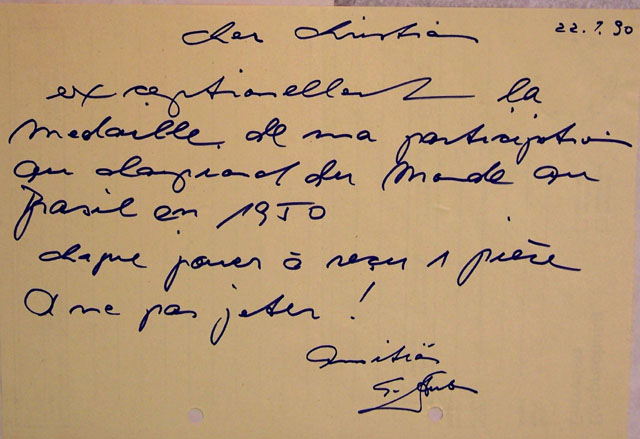 22.7.90
cher christian
exceptionellement la
medaille de ma participation
au championat du Monde au
Brasil en 1950
chaque jouer à reçu 1 pièce
A ne pas jeter !
Amitiés